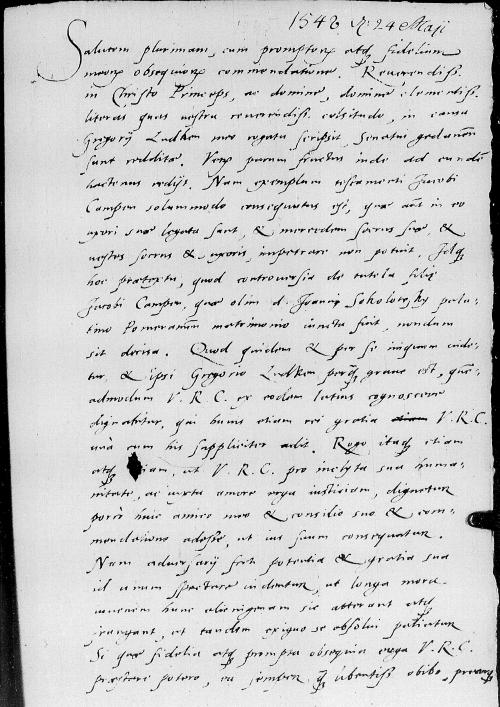 1548 24 Maij
Salutem plurimam, cum promptorum atque fidelium
meorum obsequiorum commendatione. Reverendiss.
in Christo Princeps, ac domine, domine clementiss.
literas quas vestra reverendiss. celsitudo, in causa
Gregorij Ludken meo rogatu scripsit, Senatui gedanen
sunt redditae. Verum parum fructus inde ad eundem
hactenus redijt. Nam exemplum testamenti Jacobi
Campen solummodo consequutus est, quae autem in eo
uxori suae legata sunt, & mercedem socrus suae, &
vestes socrus & uxoris impetrare non potuit. Idque
hoc praetextu, quod controversia de tutela filiae
Jacobi Campen, quae olim d. Sokolowsky pala-
tino Pomeranien matrimonio iuncta fuit, nondum
sit decisa. Quod quidem & per se iniquum vide-
tur, & ipsi Gregorio Ludken perque grave est, quem-
admodum V. R. C. ex eodem latius cognoscere
dignabitur, qui huius etiam rei gratia V. R. C.
una cum his suppliciter adit. Rogo itaque etiam
atque etiam, ut V. R. C. pro inclyta sua huma-
nitate, ac iuxta amore erga iusticiam, dignetur
porro huic amico meo & consilio suo & com-
mendatione adesse, ut ius suum consequatur.
Nam adversarij freti potentia & gratia sua
id unum spectare videntur, ut longa mora
iuvenem hunc alienigenam sic atterant atque
frangant, ut tandem exiguo se absolvi patiatur
Si quae fidelia atque prompta obsequia erga V. R. C.
praestare potero, ea semper quam lubentiss. obibo,